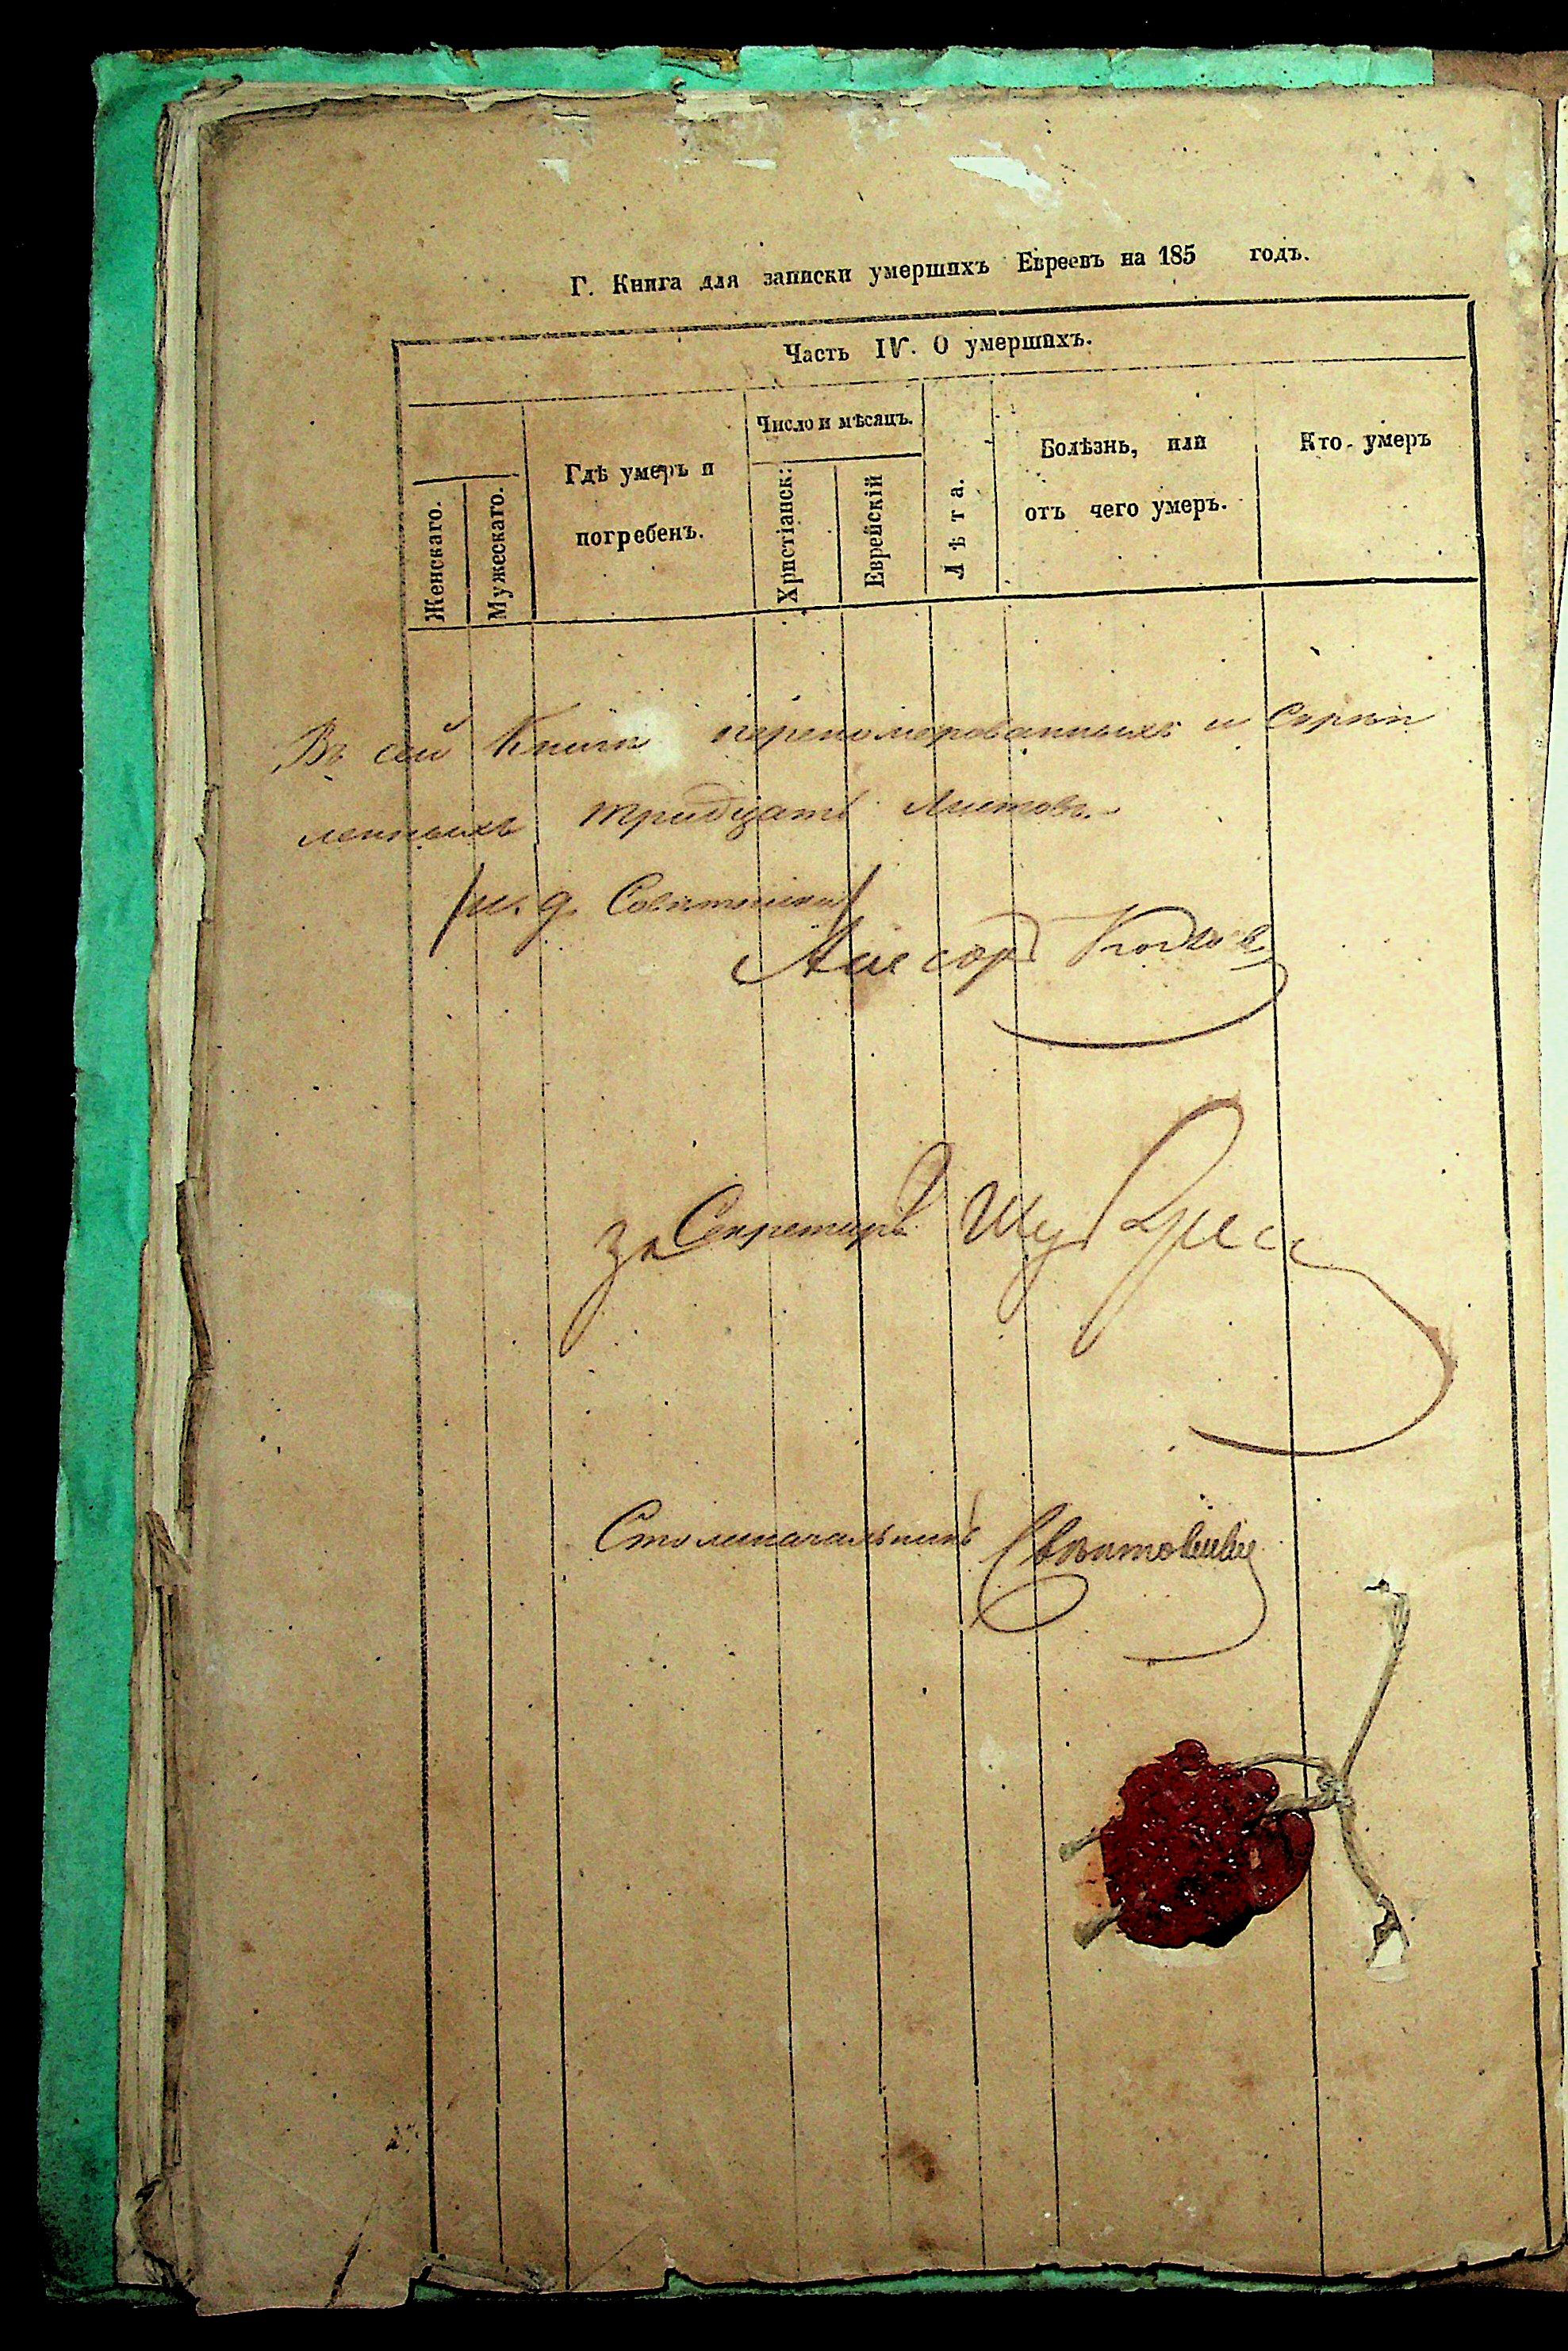 Г. Книга для записки умершихъ Евреевъ на 185 годъ.
Часть IV. О умершихъ.
Женскаго.
Мужескаго.
Гдѣ умеръ и
погребенъ.
Число и мѣсяцъ.
Христіанск:
Еврейскій
Лѣта.
Болѣзнь, или
отъ чего умеръ.
Кто умеръ
Въ сей Книги перепомерованныхъ и скрѣп
ленныхъ тридцать листовъ
/и. д. Совѣтника/
Ассесоръ
За Секретаря
Столоначальникъ